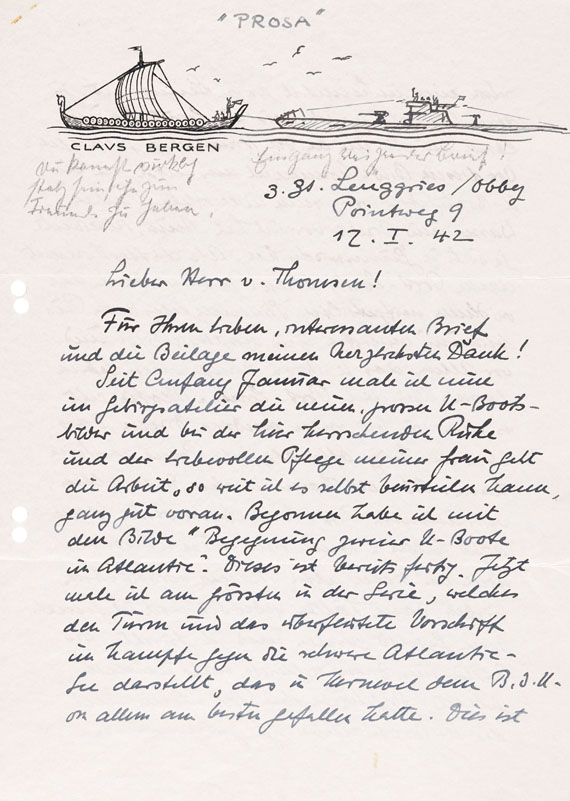 "PROSA"
CLAUS BERGEN
Du kannst wirklich
stolz sein
Freunde zu haben.
Eingang
z. Zt. Lenggries / Obby
Pointweg 9
12. I. 42
Lieber Herr v. Thomsen!
Für Ihren lieben, interessanten Brief
und die Beilage meinen herzlichsten Dank!
Seit Anfang Januar male ich nun
im Gebirgsatelier die neuen, grossen U-Boots-
bilder und bei der hier herrschenden Ruhe
und der liebevollen Pflege meiner Frau geht
die Arbeit, so weit ich es selbst beurteilen kann,
ganz gut voran. Begonnen habe ich mit
dem Bilde "Begegnung zweier U-Boote
im Atlantic". Dieses ist bereits fertig. Jetzt
male ich am grössten in der Serie, welches
den Turm und das überflutete Vorschiff
im Kampfe gegen die schwere Atlantic-
See darstellt, das in Kernevel dem B.d.U.
vor allem am besten gefallen hatte. Dies ist